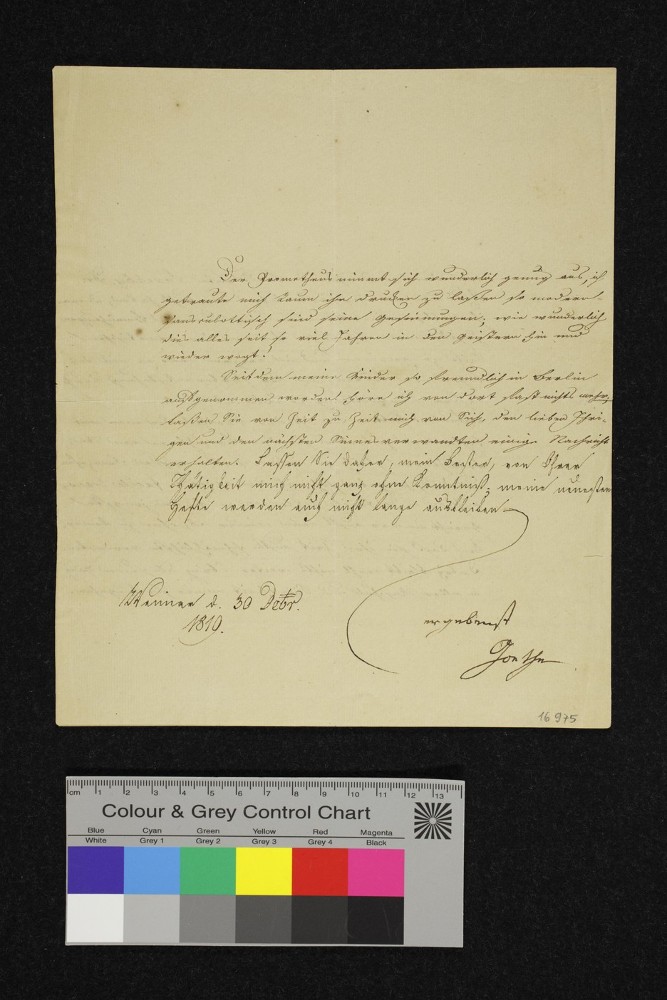 Der Prometheus nimmt sich wunderlich genug aus, ich
getraute mich kaum ihn drucken zu lassen so modern-
sansculottisch sind seine Gesinnungen; wie wunderlich
dies alles seit so viel Jahren in den Geistern hin und
wieder wogt!
Seitdem meine Kinder so freundlich in Berlin
aufgenommen worden höre ich von dort fast nichts mehr,
lassen Sie von Zeit zu Zeit mich von Sich, den lieben Ihri-
gen und den nächsten Sinnesverwandten einige Nachricht
erhalten. Lassen Sie daher, mein Bester, von Ihrer
Thätigkeit mich nicht ganz ohne Kenntniß; meine neuesten
Hefte werden auch nicht lange ausbleiben.
Weimar d. 30 Dcbr.
1819.
ergebenst
Goethe
16 975
cm 1 2 3 4 5 6 7 8 9 10 11 12 13
Colour & Grey Control Chart
Blue Cyan Green Yellow Red Magenta
White Grey 1 Grey 2 Grey 3 Grey 4 Black